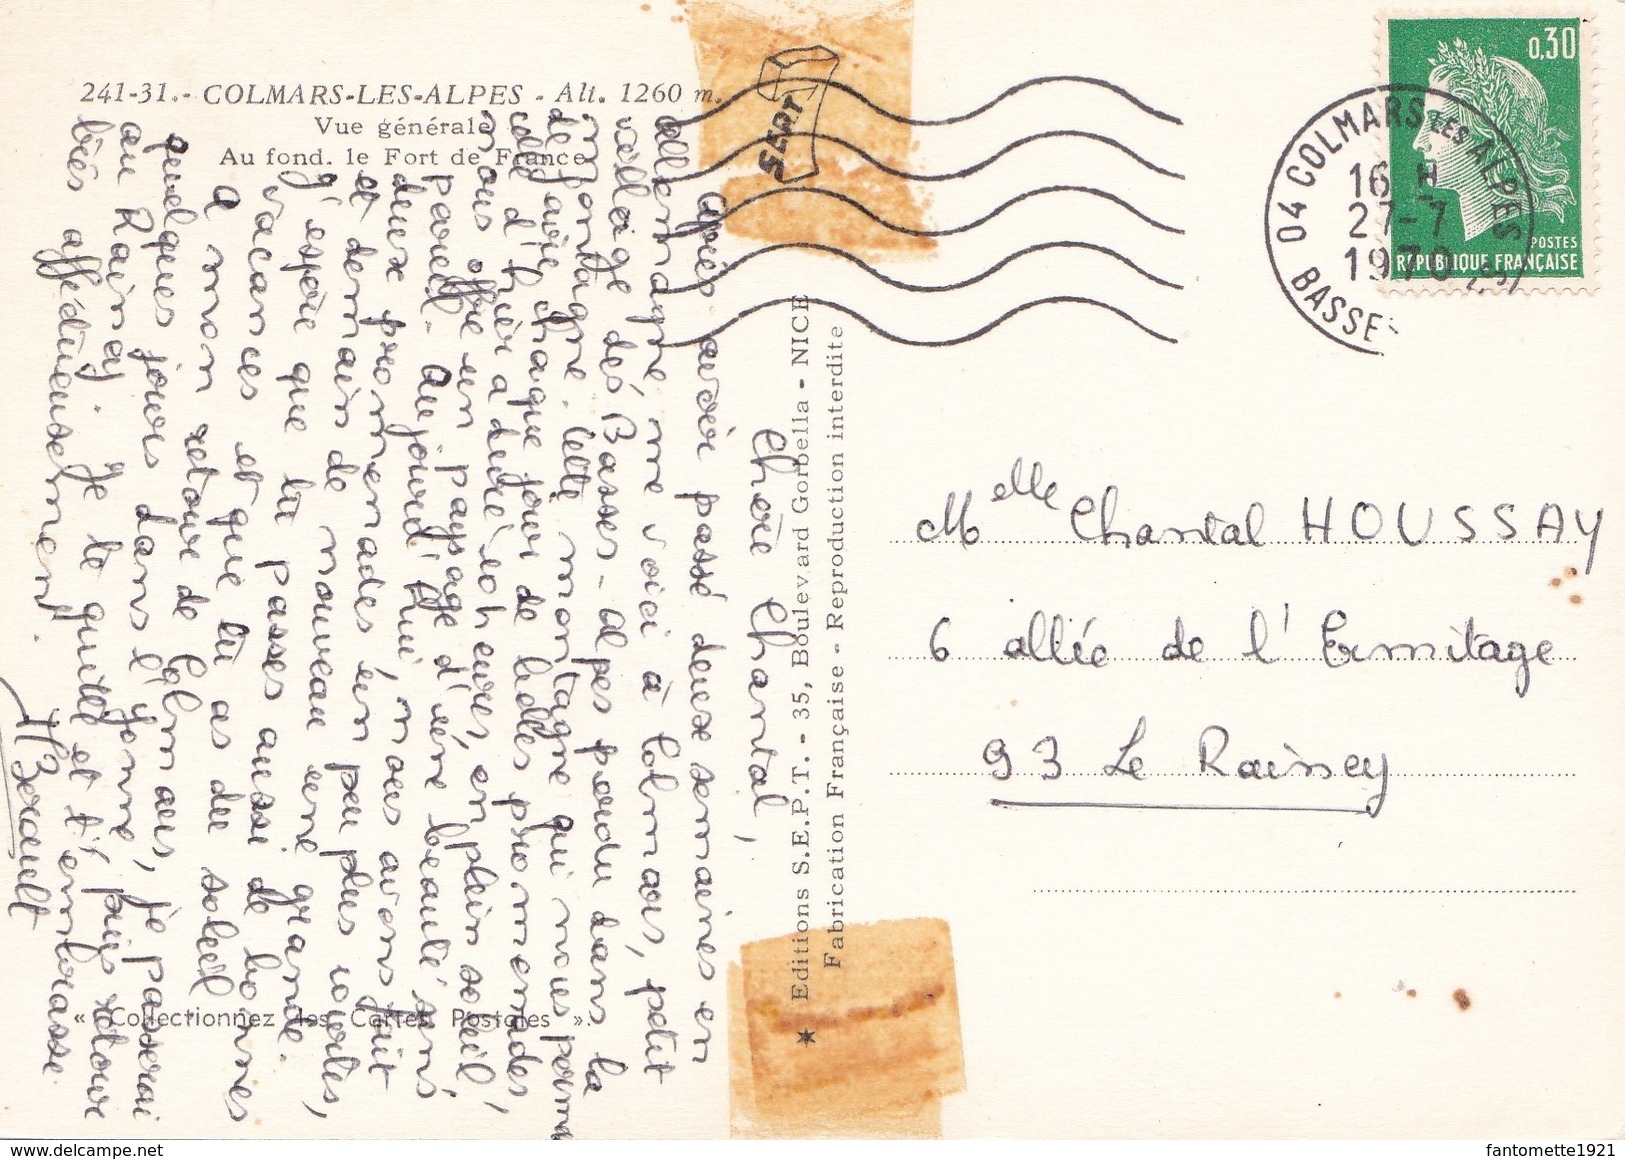 241-31.- COLMARS-LES-ALPES - Alt. 1260 m.
Vue générale
Au fond. le Fort de France
SEPT
0,30
POSTES
REPUBLIQUE FRANÇAISE
04 COLMARS LES ALPES
16 H
27-7
1970
BASSES
Chère Chantal,
Après avoir passé deux semaines en
allemagne, me voici à Colmars, petit
village des Basses-Alpes perdu dans la
montagne. Cette montagne qui nous permet
de faire chaque jour de belles promenades,
celle d'hier a duré 10 heures, en plein soleil,
nous offre un paysage d'une beauté sans
pareil. Aujourd'hui, nous avons fait
deux promenades un peu plus courtes,
et demain de nouveau une grande.
J'espère que tu passes aussi de bonnes
vacances et que tu as du soleil
A mon retour de Colmars, je passerai
quelques jours dans l'Yonne, puis retour
au Raincy. Je te quitte et t'embrasse
très affectueusement.
Editions S.E.P.T. - 35, Boulevard Gorbella - NICE
Fabrication Française - Reproduction interdite
« Collectionnez les Cartes Postales ».
Melle Chantal HOUSSAY
6 allée de l'Ermitage
93 Le Raincy
fantomette1921